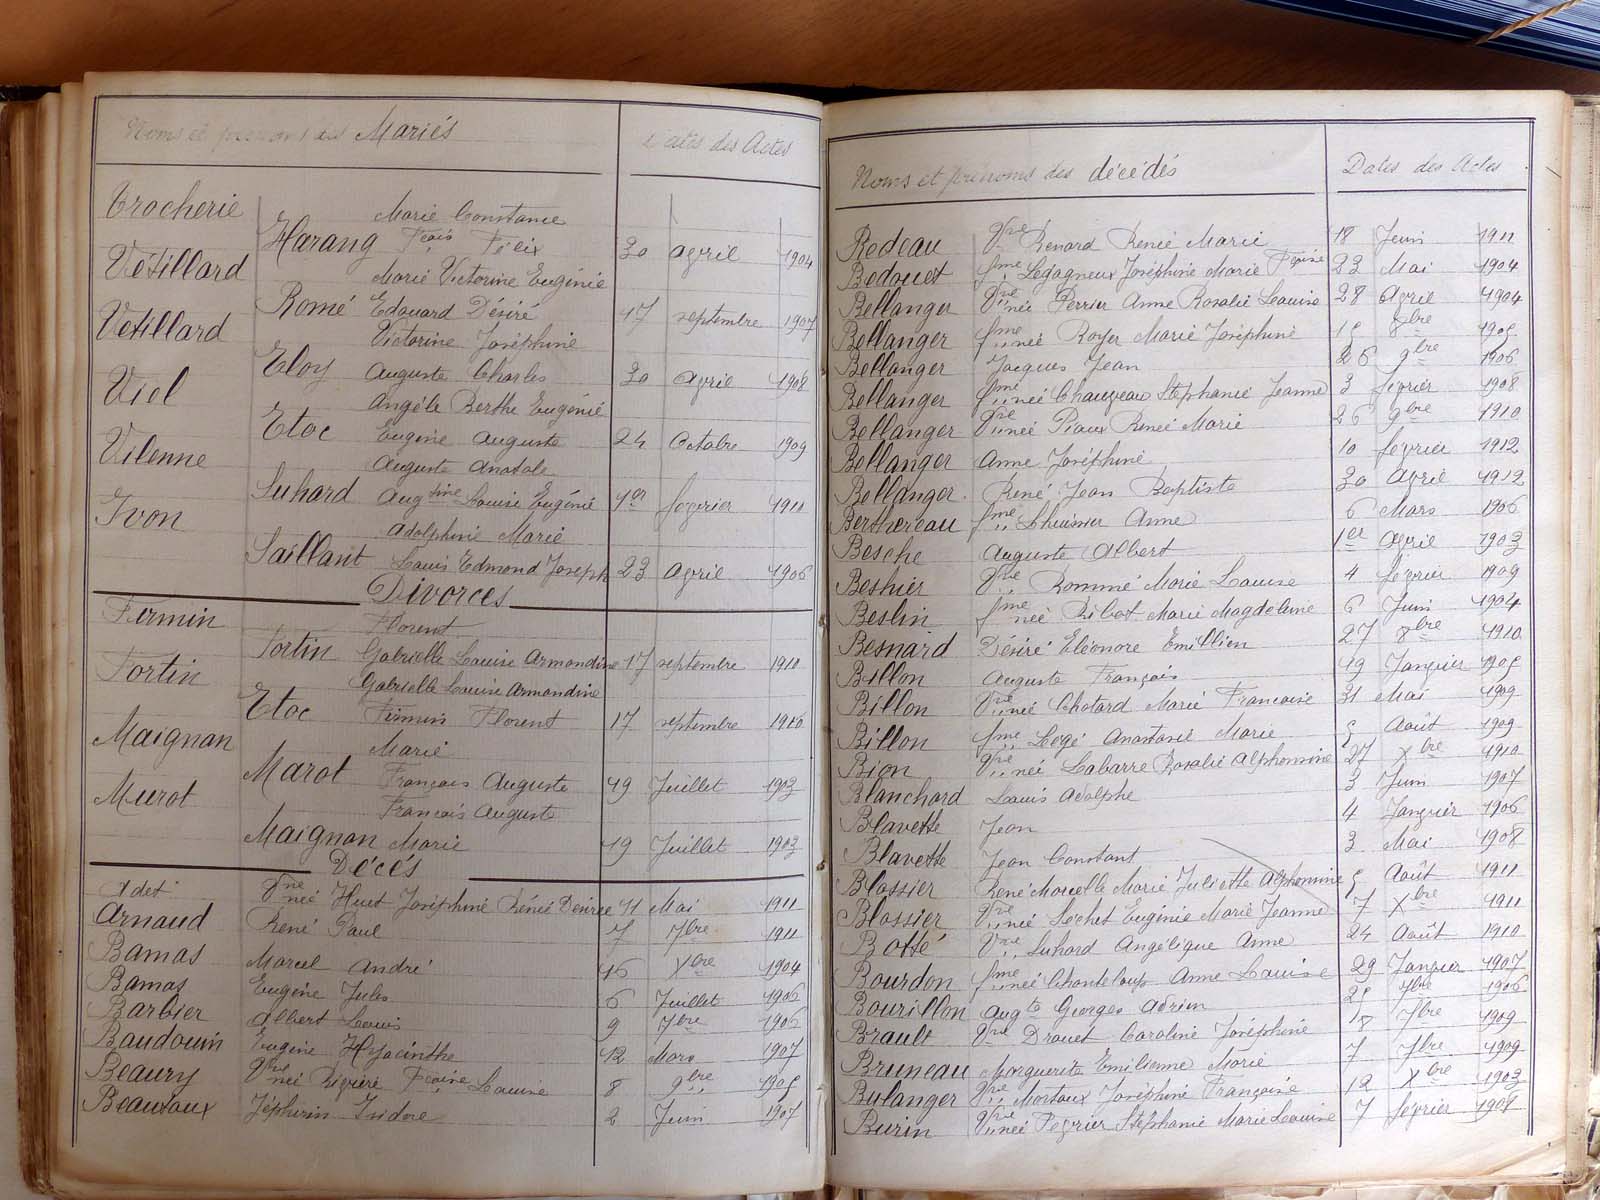 Noms et prénoms des Mariés Dates des Actes
Trocherie Marie Constance
Harang Fçois Félix 30 avril 1904
Vétillard Marie Victorine Eugénie
Romé Edouard Désiré 17 septembre 1907
Vétillard Victorine Joséphine
Eloy Auguste Charles 30 avril 1908
Viel Angèle Berthe Eugénie
Etoc Eugène Auguste 24 Octobre 1909
Vilenne Auguste Anatole
Suhard Augtine Louise Eugénie 1er février 1911
Yvon Adolphine Marie
Saillant Louis Edmond Joseph 23 avril 1906
Divorces
Firmin Florent
Fortin Gabrielle Louise Armandine 17 septembre 1910
Fortin Gabrielle Louise Armandine
Etoc Firmin Florent 17 septembre 1910
Maignan Marie
Marot François Auguste 19 Juillet 1903
Murot François Auguste
Maignan Marie 19 Juillet 1903
Décés
Adet Vve née Huet Joséphine Rénée Désirée 11 Mai 1911
Arnaud René Paul 7 7bre 1911
Bamas Marcel André 16 Xbre 1904
Bamas Eugène Jules 6 Juillet 1906
Barbier Albert Louis 9 7bre 1906
Baudouin Eugène Hyacinthe 12 Mars 1907
Beaury Vve née Rivière Fçoise Louise 8 9bre 1905
Beautaux Zéphirin Isidore 2 Juin 1907
Noms et prénoms des décédés Dates des Actes
Bedeau Vve Renard Renée Marie 18 Juin 1911
Bedouet fme Legagneux Joséphine Marie Fçoise 23 Mai 1904
Bellanger Vve née Perrier Anne Rosalie Louise 28 avril 1904
Bellanger fme née Royer Marie Joséphine 15 8bre 1905
Bellanger Jacques Jean 26 9bre 1906
Bellanger fme née Chauveau Stéphanie Jeanne 3 février 1908
Bellanger Vve née Piaux Renée Marie 26 9bre 1910
Bellanger Anne Joséphine 10 février 1912
Bellanger René Jean Baptiste 30 avril 1912
Berthereau fme Lhuissier Anne 6 Mars 1906
Besche Auguste Albert 1er avril 1903
Beshier Vve Rommé Marie Louise 4 février 1909
Beslin fme née Ribot Marie Magdeleine 6 Juin 1904
Besnard Désiré Eléonore Emillien 27 8bre 1910
Billon Auguste François 19 Janvier 1905
Billon Vve née Chotard Marie Françoise 31 Mai 1909
Billon fme Legé Anastasie Marie 5 Août 1909
Bion Vve née Labarre Rosalie Alphonsine 27 Xbre 1910
Blanchard Louis Adolphe 3 Juin 1907
Blavette Jean 4 Janvier 1906
Blavette Jean Constant 3 Mai 1908
Blossier René Marcelle Marie Juliette Alphonsine 5 Août 1911
Blossier Vve née Sechet Eugénie Marie Jeanne 7 Xbre 1911
Botté Vve Suhard Angélique Anne 24 Août 1910
Bourdon fme née Chanteloup Anne Louise 29 Janvier 1907
Bourillon Augte Georges Adrien 25 7bre 1906
Brault Vve Drouet Caroline Joséphine 18 7bre 1909
Bruneau Marguerite Emilienne Marie 7 7bre 1909
Bulanger Vve Mortaux Joséphine Françoise 12 Xbre 1903
Burin Vve née Fevrier Stéphanie Marie Louise 7 février 1905